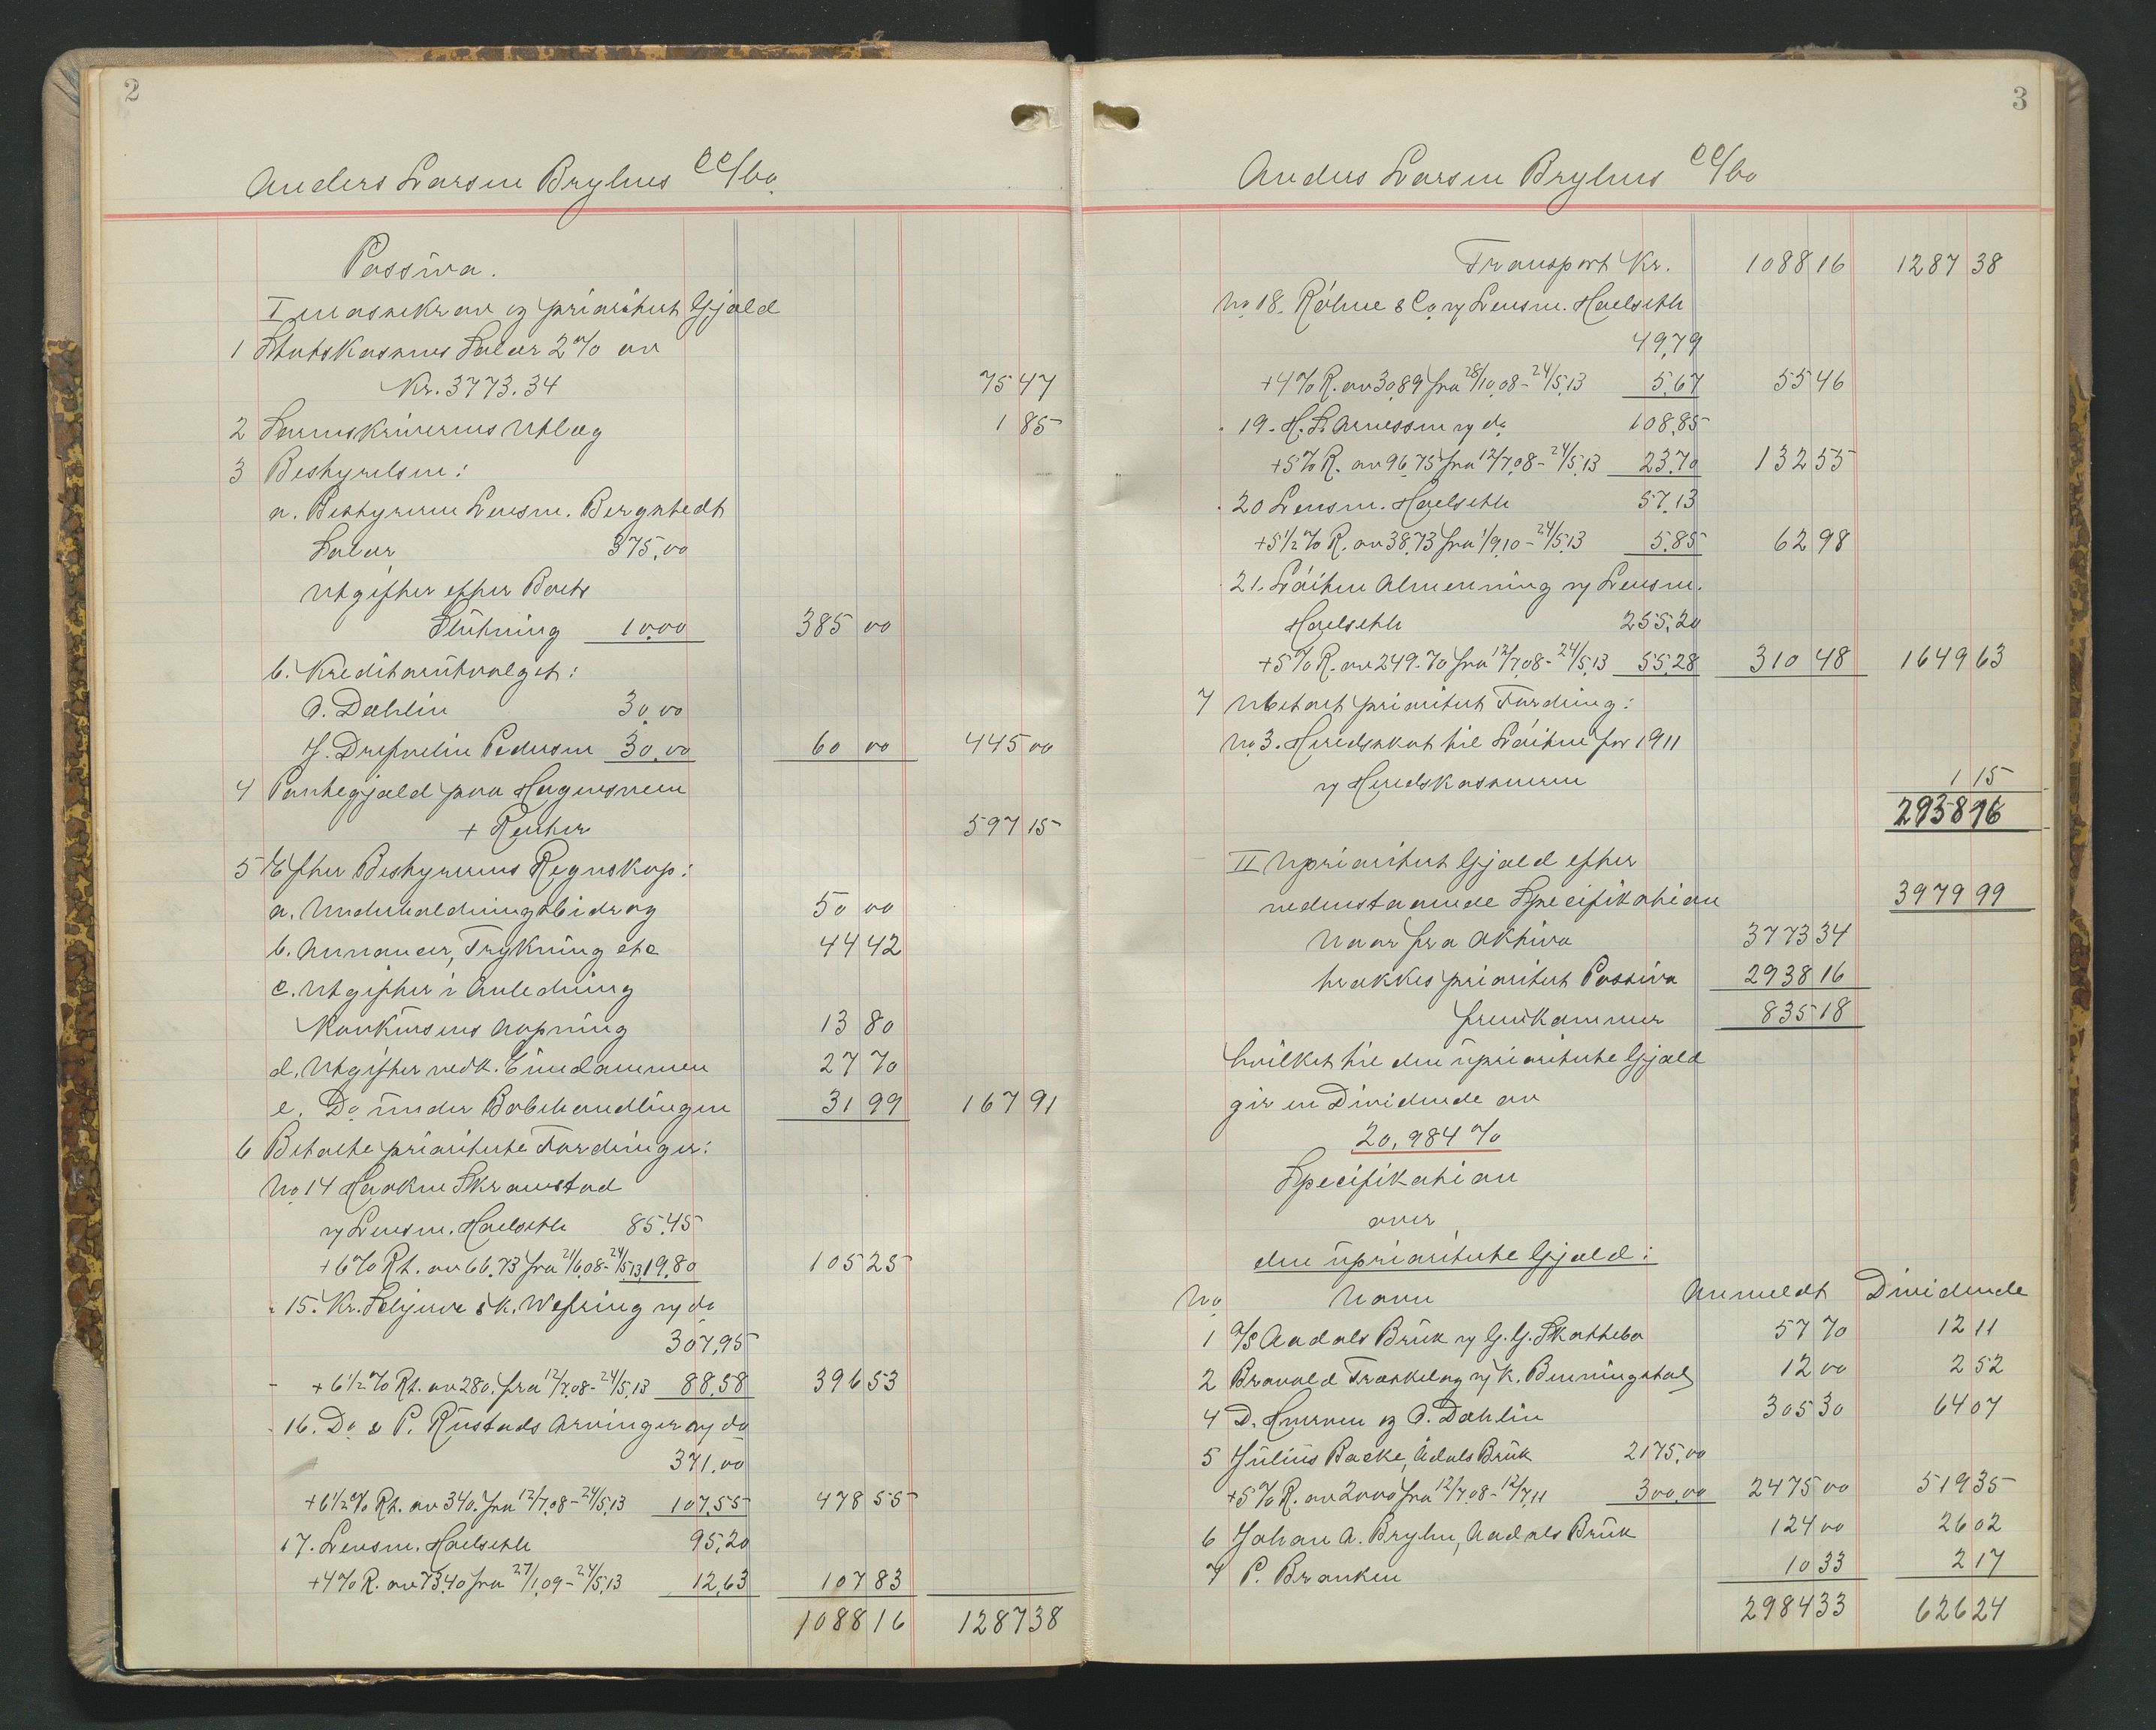 2
Anders Larsen Bryhns CC/bo
Passiva.
I Massekrav og prioritert Gjæld
1 Statskassens Salær 2% av
Kr. 3773.34 75 47
2 Sorenskriverens Utlæg 1 85
3 Bestyrelsen:
a. Bestyreren Lensm. Bergstedt
Salær 375,00
Utgifter efter Boets
Slutning 10,00 385 00
b. Kreditorutvalget:
O. Dæhlin 30,00
J. Drefvelin Pedersen 30,00 60 00 445 00
4 Pantegjæld paa Hagensveen
+ Renter 597 15
5 Efter Bestyrerens Regnskap:
a. Underholdningsbidrag 50 00
b. Annoncer, Trykning etc 44 42
c. Utgifter i Anledning
Konkursens Aapning 13 80
d. Utgifter vedk. Eiendommen 27 70
e. Do under Bobehandlingen 31 99 167 91
6 Betalte prioriterte Fordringer:
No 14 Haaken Skramstad
v/ Lensm. Hoelseth 85,45
+ 6% Rt. av 66.73 fra 21/6.08 - 24/5.13 19,80 105 25
" 15. Kr. Seljuve & K. Wefring v/ do
307,95
+ 6½% Rt. av 280. fra 12/7.08 - 24/5.13 88,58 396 53
" 16. Do & P. Rustads Arvinger v/ do
371,00
+ 6½% Rt. av 340. fra 12/7.08 - 24/5.13 107,55 478 55
17. Lensm. Hoelseth 95,20
+ 4% R. av 73,40 fra 27/1.09 - 24/5.13 12,63 107 83
1088 16 1287 38
3
Anders Larsen Bryhns CC/bo
Transport Kr. 1088 16 1287 38
No 18. Röhne & Co v/ Lensm. Hoelseth
49,79
+ 4% R. av 30,89 fra 28/10.08 - 24/5.13 5,67 55 46
" 19. H. L. Arnessen v/ do 108,85
+ 5% R. av 96,75 fra 12/7.08 - 24/5.13 23,70 132 55
" 20 Lensm. Hoelseth 57,13
+ 5½% R. av 38,73 fra 1/9.10 - 24/5.13 5,85 62 98
" 21. Löiten Almenning v/ Lensm.
Hoelseth 255,20
+ 5% R. av 249.70 fra 12/7.08 - 24/5.13 55,28 310 48 1649 63
7 Ubetalt prioritert Fordring:
No 3. Heredsskat til Löiten for 1911
v/ Heredskassereren 1 15
2938 16
II Uprioritert Gjæld efter
nedenstaaende Specifikation 3979 99
Naar fra Aktiva 3773 34
trækkes prioritert Passiva 2938 16
fremkommer 835 18
hvilket til den uprioriterte Gjæld
gir en Dividende av
20,984 %
Specifikation
over
den uprioriterte Gjæld:
No Navn Anmeldt Dividende
1 A/S Aadals Bruk v/ G. G. Skattebo 57 70 12 11
2 Bravold Træskelag v/ K. Benningstad 12 00 2 52
4 D. Hverven og O. Dæhlin 305 30 64 07
5 Julius Backe, Ådals Bruk 2175,00
+ 5% R. av 2000 fra 12/7.08 - 12/7.11 300,00 2475 00 519 35
6 Johan A. Bryhn, Aadals Bruk 124 00 26 02
7 P. Branken 10 33 2 17
2984 33 626 24